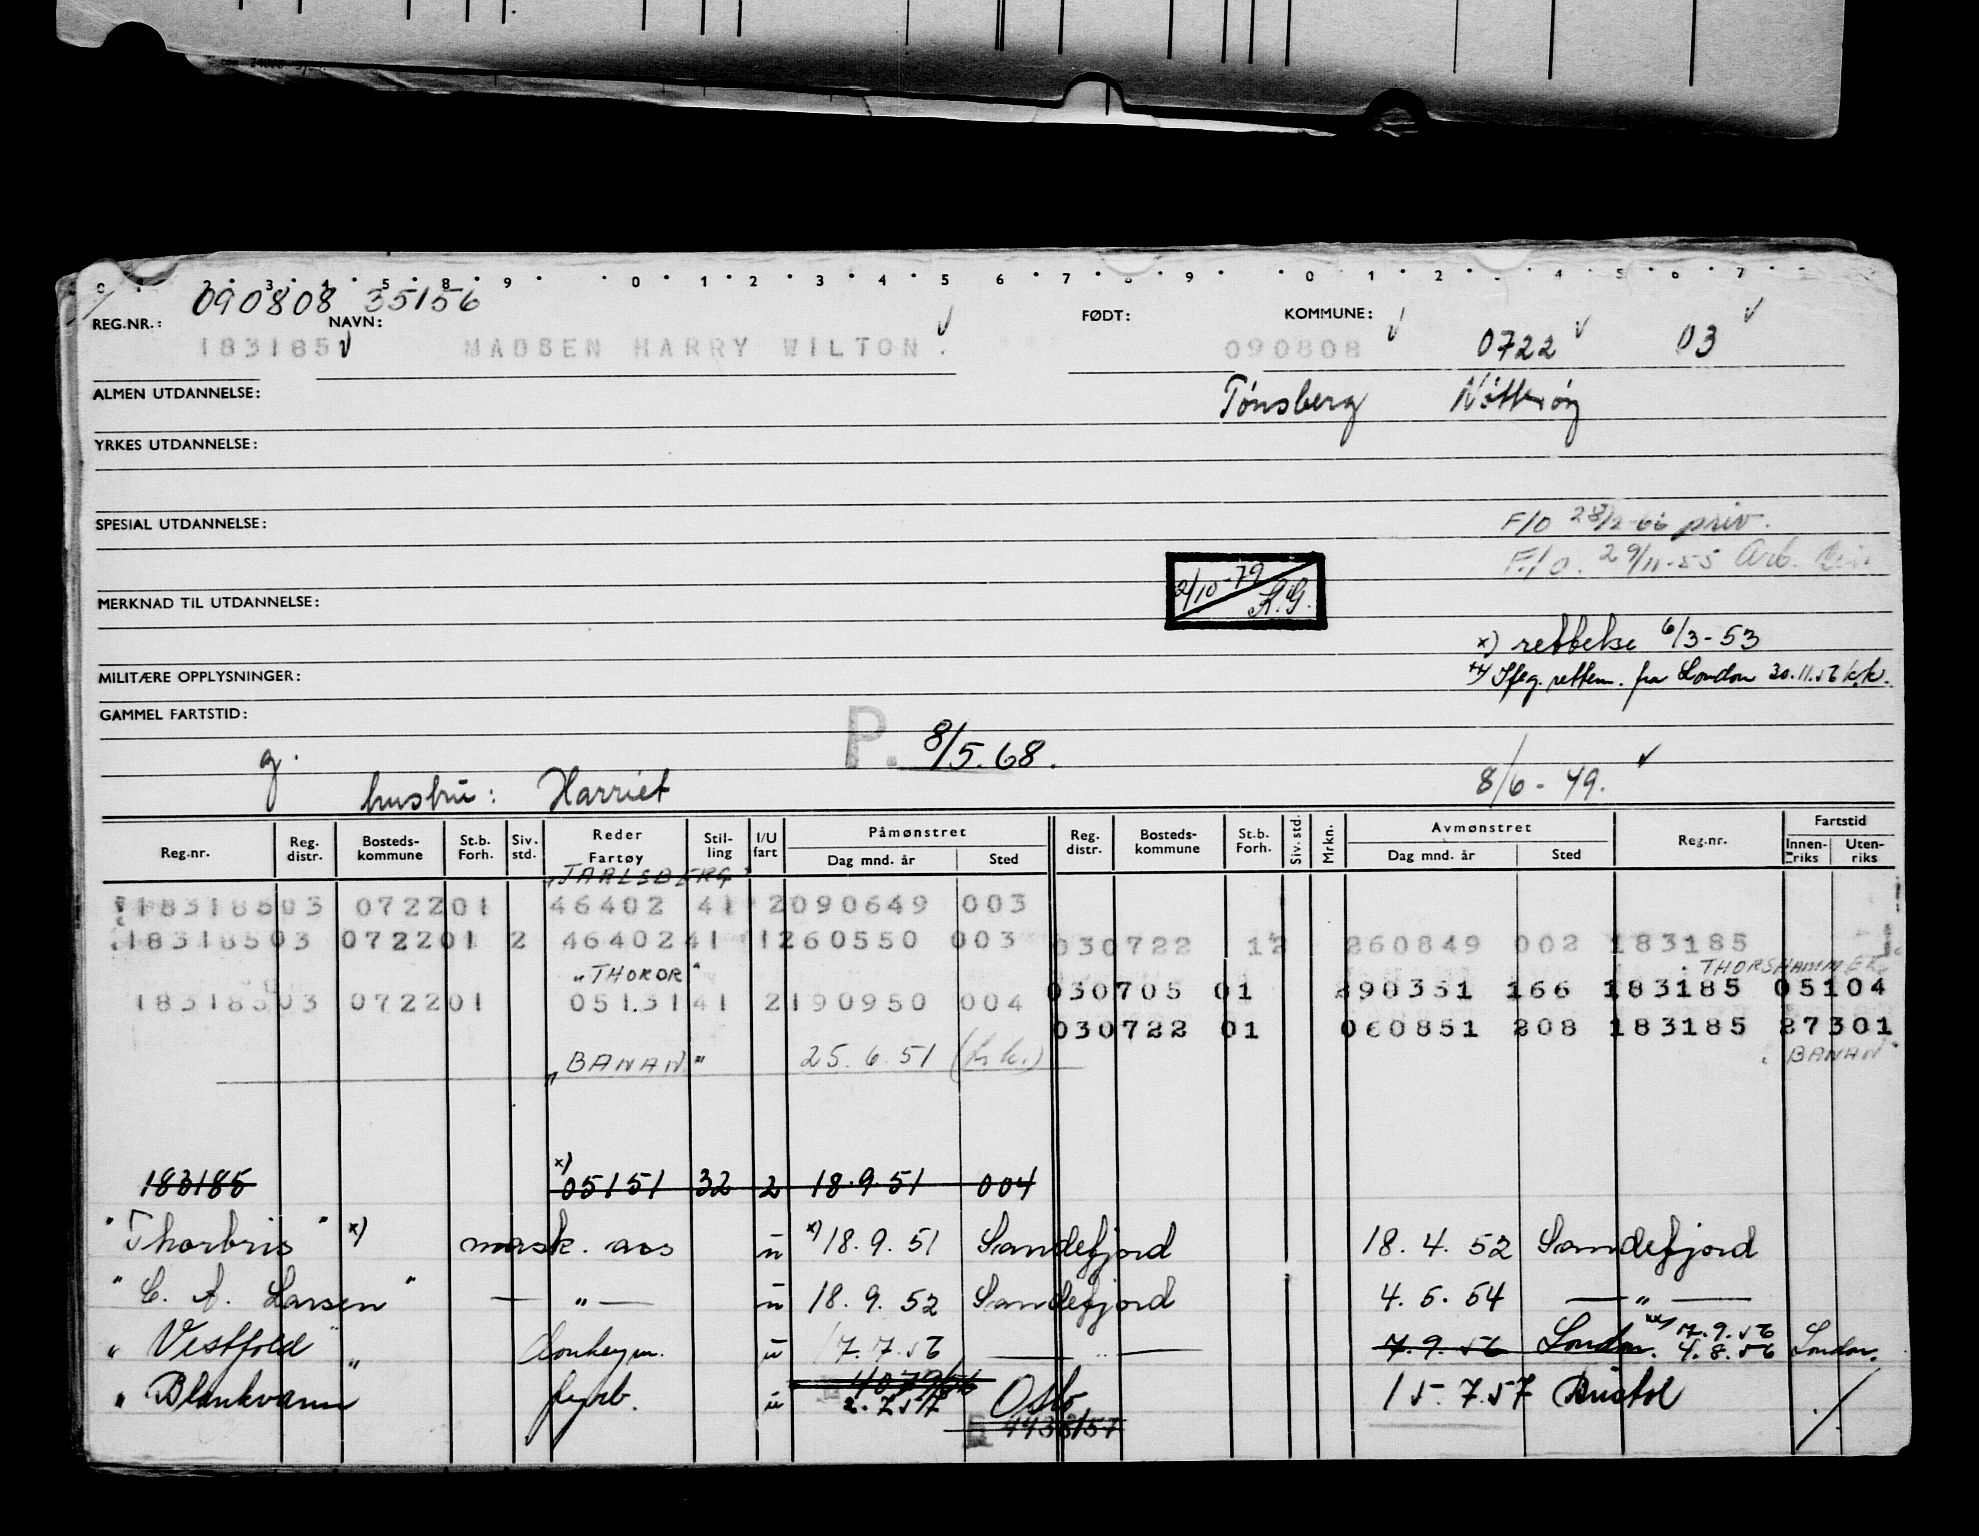 090808 35156
REG.NR.: NAVN: FØDT: KOMMUNE:
183185 MADSEN HARRY WILTON 090808 0722 03
ALMEN UTDANNELSE: Tønsberg Nøtterøy
YRKES UTDANNELSE:
SPESIAL UTDANNELSE: F/O 28/2-66 priv.
F/O. 29/11-55 Arb.
2/10-79 K.G.
MERKNAD TIL UTDANNELSE:
x) rettelse 6/3-53
MILITÆRE OPPLYSNINGER: xx) Iføg. rettem. fra London 30.11.56 k.k.
GAMMEL FARTSTID:
P. 8/5.68.
g.
hustru: Harriet 8/6-49.
Reg.nr. Reg. distr. Bosteds-kommune St.b. Forh. Siv. std. Reder Fartøy Stil-ling I/U fart Påmønstret Dag mnd. år Sted Reg. distr. Bosteds-kommune St.b. Forh. Siv. std. Mrkn. Avmønstret Dag mnd. år Sted Reg.nr. Fartstid Innen-riks Uten-riks
"JARLSBERG"
18318503 072201 46402 41 2090649 003
18318503 072201 2 4640241 1260550 003 030722 12 260849 002 183185
"THOROR" THORSHAMMER
18318503 072201 0513141 2190950 004 030705 01 290351 166 183185 05104
030722 01 060851 208 183185 27301
"BANAN" 25.6.51 (h.k.) "BANAN"
183185 x) 05151 32 2 18.9.51 004
"Thorbris" x) mask. ass u x) 18.9.51 Sandefjord 18.4.52 Sandefjord
"C. A. Larsen" — " — u 18.9.52 Sandefjord 4.5.54 — " —
"Vestfold" u 17.7.56 — " — 7.9.56 London. xx) 17.9.56 4.8.56 London.
"Blankvann" fyrb. u 2.7.57 Oslo 15.7.57 Bristol
4438/57